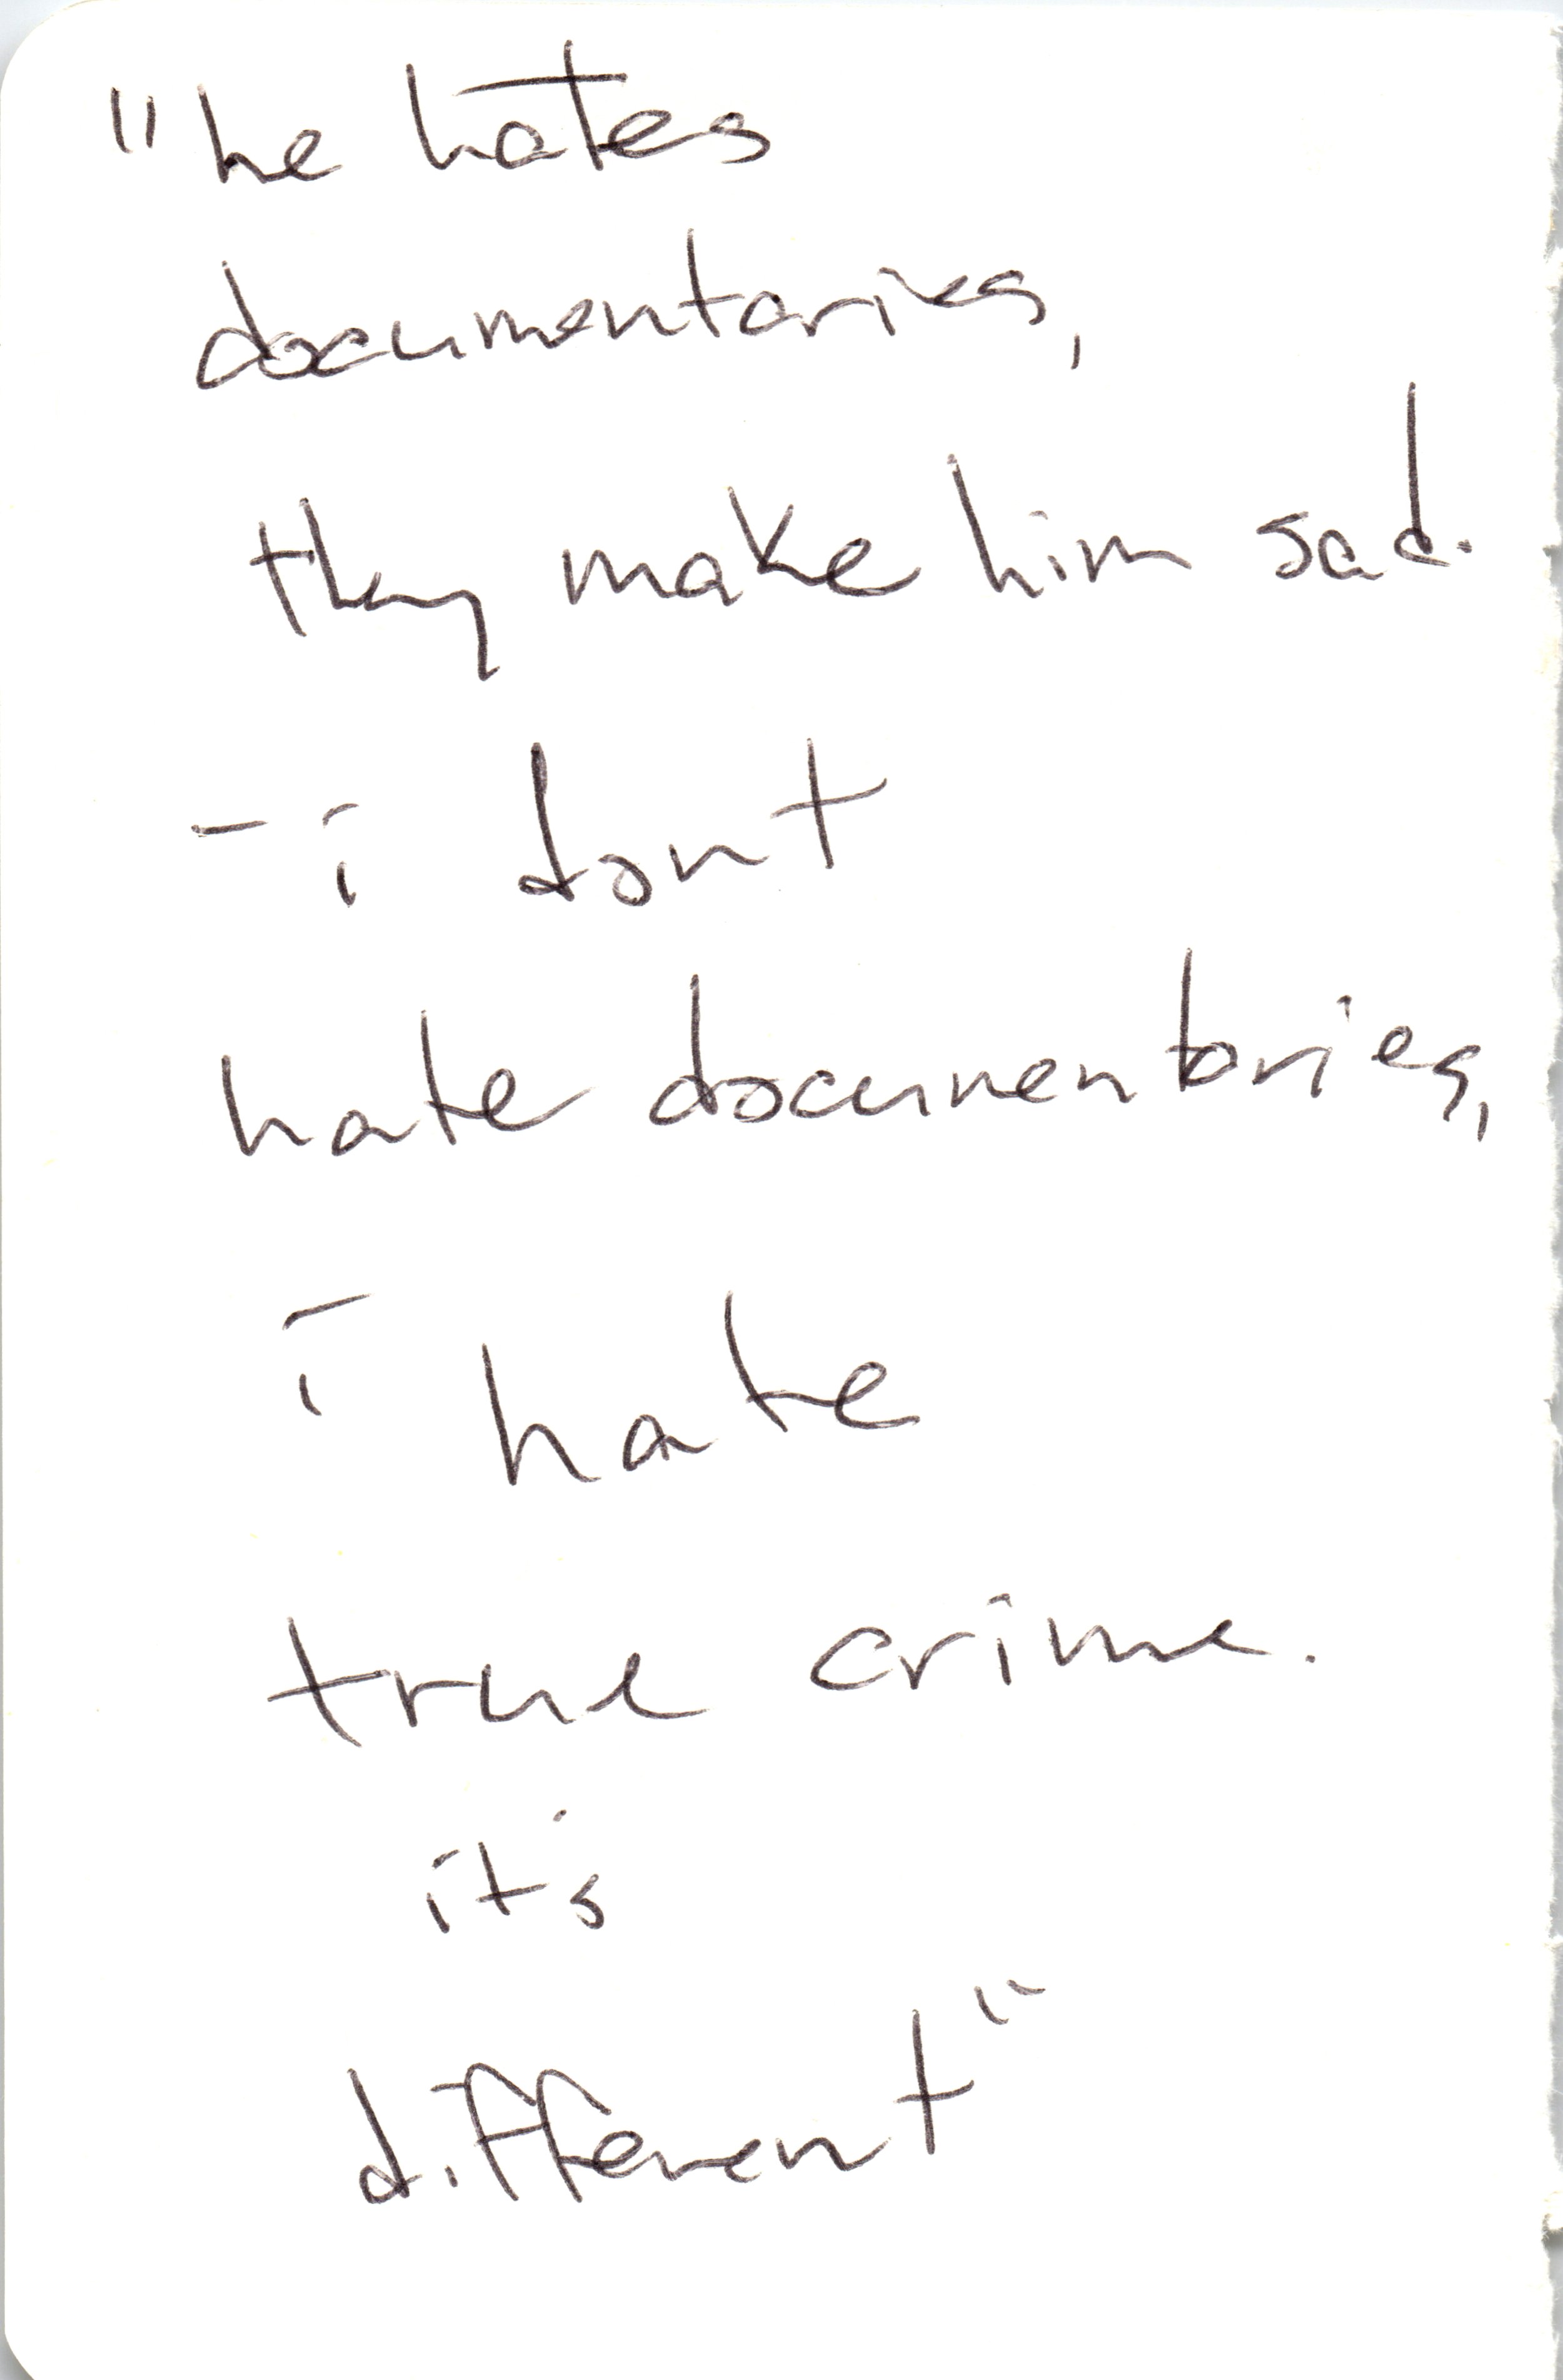 "he hates
documentaries,
they make him sad.
- i dont
hate documentaries,
i hate
true crime.
it's
different"